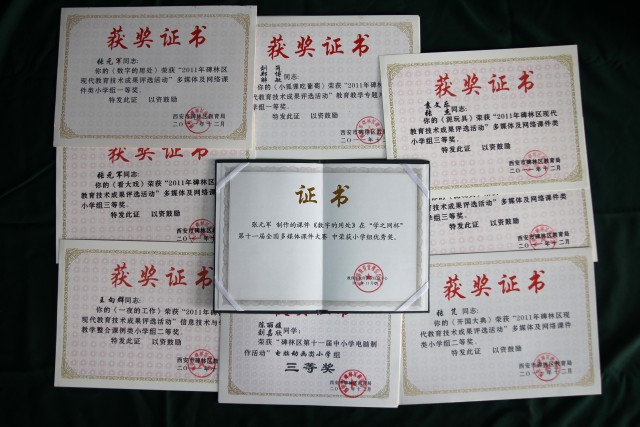 获奖证书
张元军同志:
你的《数字的用处》荣获“2011年碑林区
现代教育技术成果评选活动”多媒体及网络课
件类小学组一等奖.
特发此证 以资鼓励
西安市碑林区教育局
二〇一一年十二月
获奖证书
同志:
你的《小狐狸吃葡萄》荣获“2011年碑林
代教育技术成果评选活动”教育教学专题
组一等奖.
特发此证 以资鼓励
获奖证书
袁文
张
同志:
你的《玩玩具》荣获“2011年碑林区现代
教育技术成果评选活动”多媒体及网络课件类
小学组三等奖.
特发此证 以资鼓励
西安市碑林区教育局
二〇一一年十二月
张元军同志:
你的《看大戏》荣获“2011年碑林区
现代教育技术成果评选活动”多媒体及网
类小学组三等奖.
特发此证 以资鼓励
证书
张元军 制作的课件《数字的用处》在“学之网杯”
第十一届全国多媒体课件大赛 中荣获小学组优秀奖。
特发此证 以资鼓励
西安市碑林区教育局
二〇一一年十二月
获奖证书
王向群同志:
你的《一夜的工作》荣获“2011年碑林
现代教育技术成果评选活动”信息技术与
教学整合课例类小学组二等奖.
特发此证 以资鼓励
西安市碑林区
二〇一一年
陈丽媛
刘嘉欣同学:
荣获“碑林区第十一届中小学电脑制
作活动”电脑动画类小学组
三等奖
西安市碑林区教育局
二〇一一年十二月
获奖证书
张 梵同志:
你的《开国大典》荣获“2011年碑林区现
代教育技术成果评选活动”多媒体及网络课件
类小学组二等奖.
特发此证 以资鼓励
西安市碑林区教育局
二〇一一年十二月